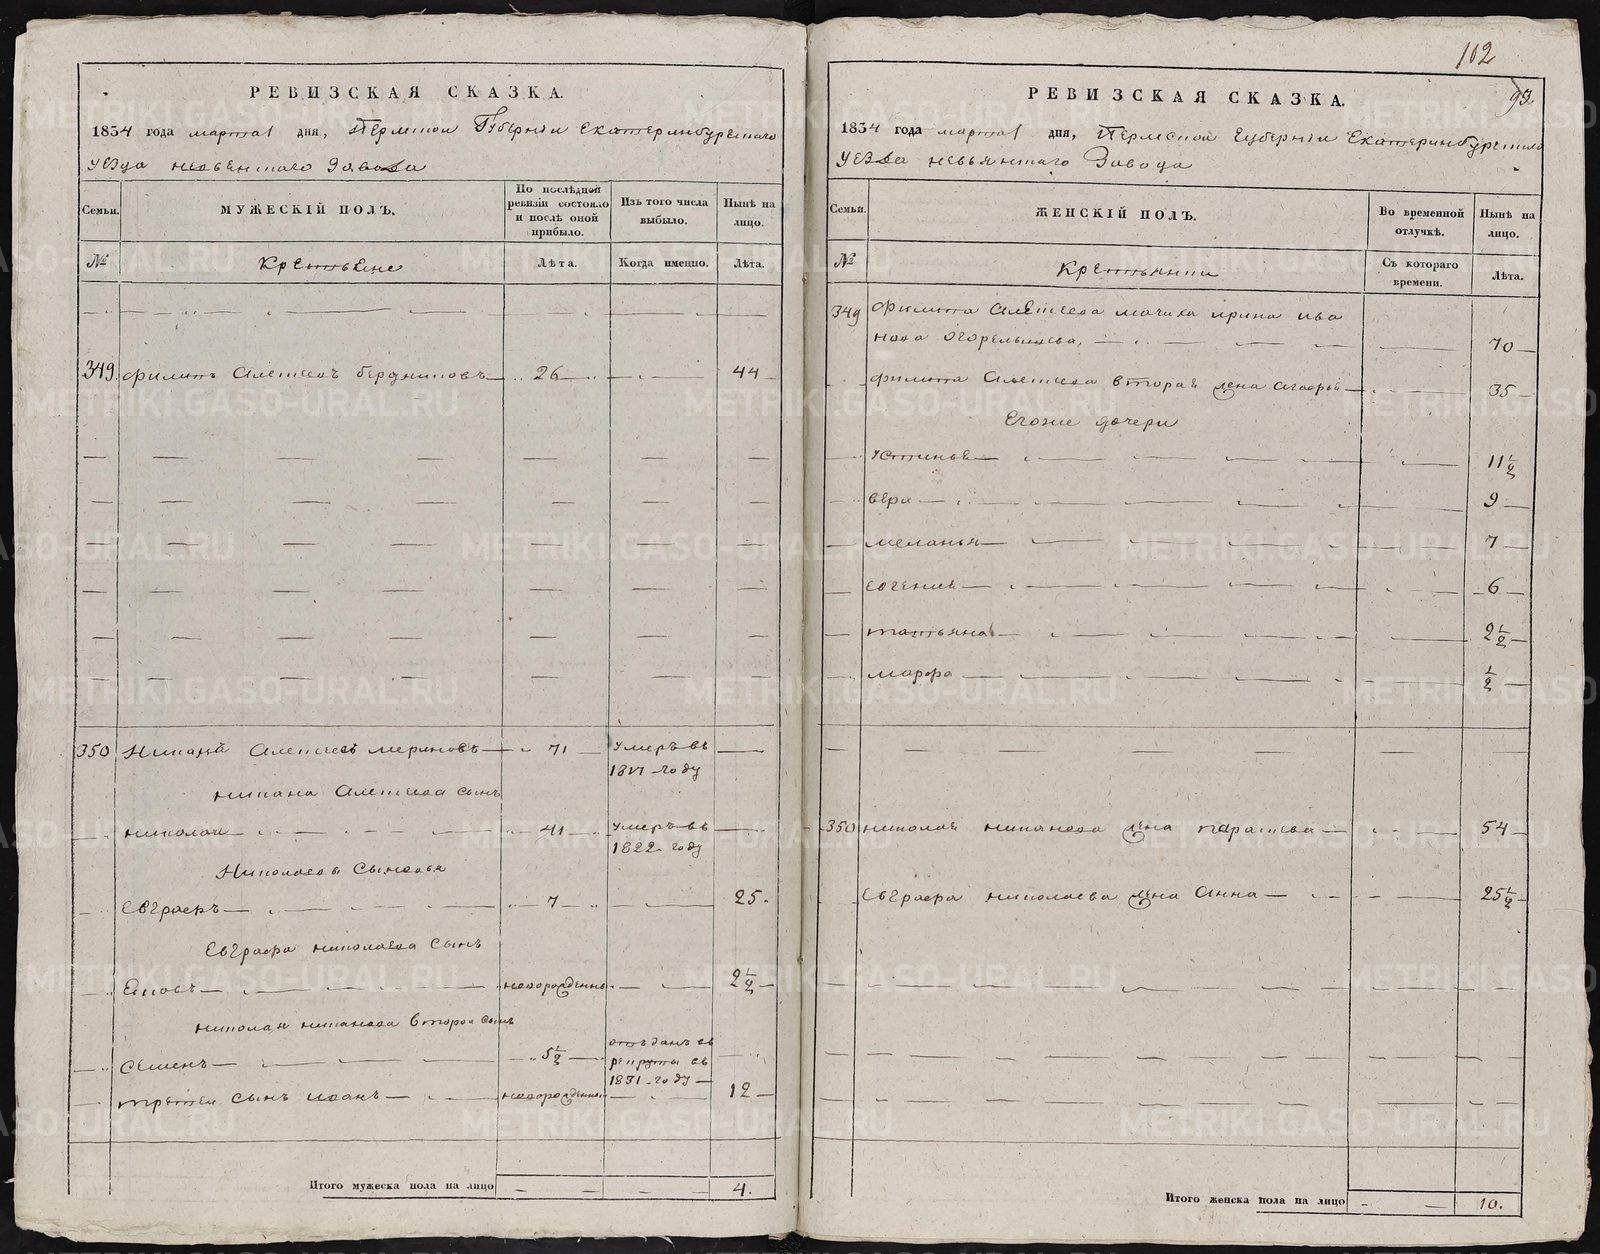 РЕВИЗСКАЯ СКАЗКА.
1834 года марта 1 дня, Пермской Губернии Екатеринбургскаго
уезда невьенскаго Завода
Семьи.
МУЖЕСКІЙ ПОЛЪ.
По послѣдней ревизіи состояло и послѣ оной прибыло.
Изъ того числа выбыло.
Нынѣ на лицо.
№
Крестьяне
Лѣта.
Когда именно.
Лѣта.
349. Филипъ Алексеевъ бердниковъ 26 44
350 Алексеевъ мериновъ 71 умеръ въ
году
Алексеева сынъ
николай 41 умеръ въ
1822 году
Николаевы сыновья
Евграфъ 7 25
Евграфа николаева сынъ
Яковъ новорожденны 2 1/2
второй сынъ
семенъ 5 1/2 отъданъ въ
рекруты въ
1831 году
третей сынъ иванъ новорожденной 12
Итого мужеска пола на лицо 4.
102
93
РЕВИЗСКАЯ СКАЗКА.
1834 года марта 1 дня, Пермской губернии Екатеринбургскаго
уезда невьянскаго Завода
Семьи.
ЖЕНСКІЙ ПОЛЪ.
Во временной отлучкѣ.
Нынѣ на лицо.
№
Крестьянки
Съ котораго времени.
Лѣта.
349 Филипа Алексеева мачиха ирина ива
нова Огорельцева, 70
Филипа Алексеева вторая жена агафья 35
Егоже дочери
устинья 11 1/2
вера 9
меланья 7
евгения 6
татьяна 2 1/2
марфа 1/2
350 николая жена парасковья 54
Евграфа николаева жена Анна 25 1/2
Итого женска пола на лицо 10.
METRIKI.GASO-URAL.RU